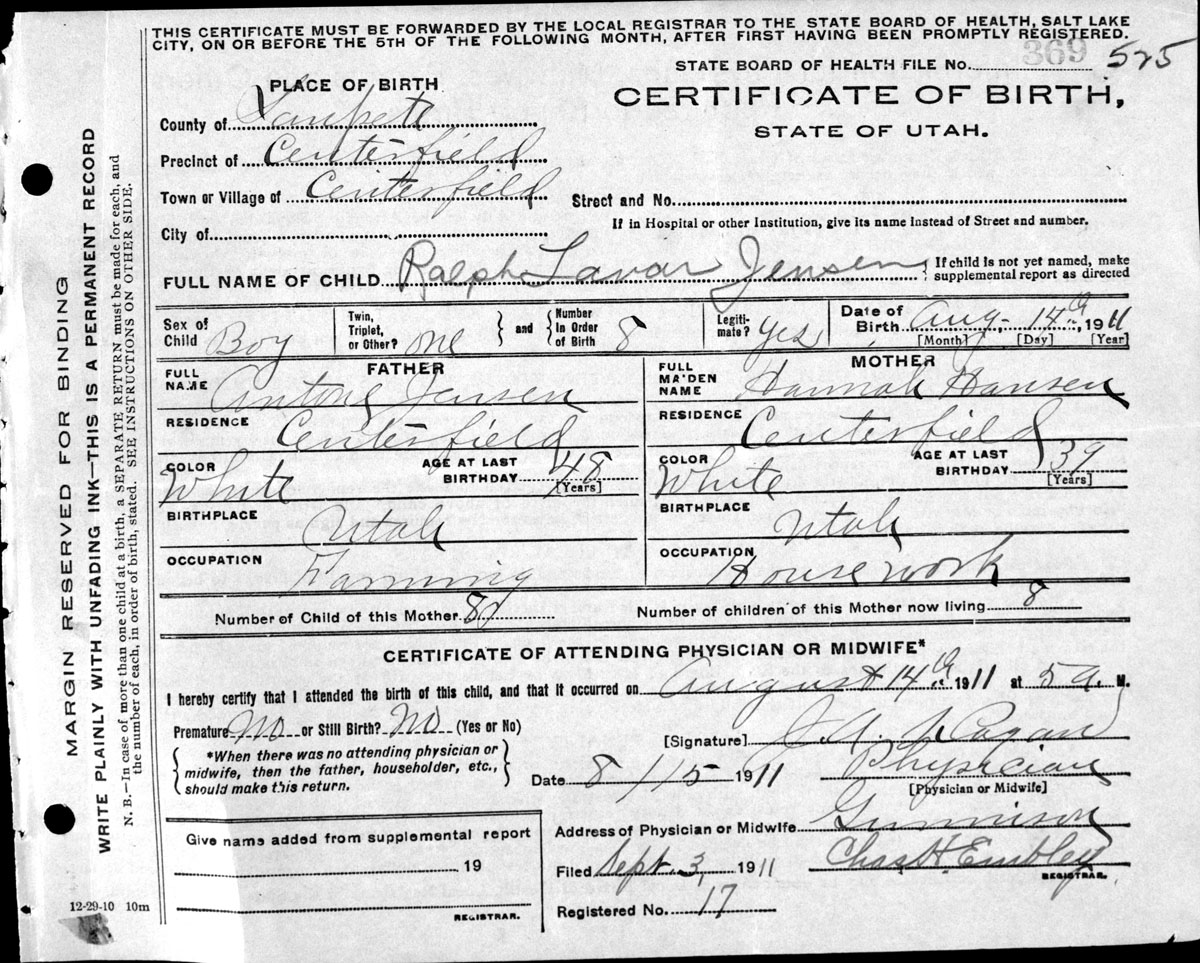 THIS CERTIFICATE MUST BE FORWARDED BY THE LOCAL REGISTRAR TO THE STATE BOARD OF HEALTH, SALT LAKE
CITY, ON OR BEFORE THE 5TH OF THE FOLLOWING MONTH, AFTER FIRST HAVING BEEN PROMPTLY REGISTERED.
STATE BOARD OF HEALTH FILE No. 369 525
PLACE OF BIRTH
CERTIFICATE OF BIRTH,
STATE OF UTAH.
County of Sanpete
Precinct of Centerfield
Town or Village of Centerfield
Street and No.
City of
If in Hospital or other Institution, give its name instead of Street and number.
FULL NAME OF CHILD Ralph Lavar Jensen
If child is not yet named, make
supplemental report as directed
Sex of Child Boy
Twin, Triplet, or Other? one
and
Number in Order of Birth 8
Legiti-mate? Yes
Date of Birth Aug. 14th 1911
[Month] [Day] [Year]
FATHER
FULL NAME Antone Jensen
RESIDENCE Centerfield
COLOR White
AGE AT LAST BIRTHDAY 48
[Years]
BIRTHPLACE Utah
OCCUPATION Farming
MOTHER
FULL MAIDEN NAME Hannah Hansen
RESIDENCE Centerfield
COLOR White
AGE AT LAST BIRTHDAY 39
[Years]
BIRTHPLACE Utah
OCCUPATION Housework
Number of Child of this Mother 8
Number of children of this Mother now living 8
CERTIFICATE OF ATTENDING PHYSICIAN OR MIDWIFE*
I hereby certify that I attended the birth of this child, and that it occurred on August 14th 1911 at 5 a. M.
Premature No or Still Birth? No (Yes or No)
[Signature]
*When there was no attending physician or
midwife, then the father, householder, etc.,
should make this return.
Date 8/15 1911
Physician
[Physician or Midwife]
Address of Physician or Midwife Gunnison
Give name added from supplemental report
19
REGISTRAR.
Filed Sept. 3, 1911
Chas H. Embley
REGISTRAR.
Registered No. 17
12-29-10 10m
MARGIN RESERVED FOR BINDING
WRITE PLAINLY WITH UNFADING INK—THIS IS A PERMANENT RECORD
N. B.—In case of more than one child at a birth, a SEPARATE RETURN must be made for each, and
the number of each, in order of birth, stated. SEE INSTRUCTIONS ON OTHER SIDE.